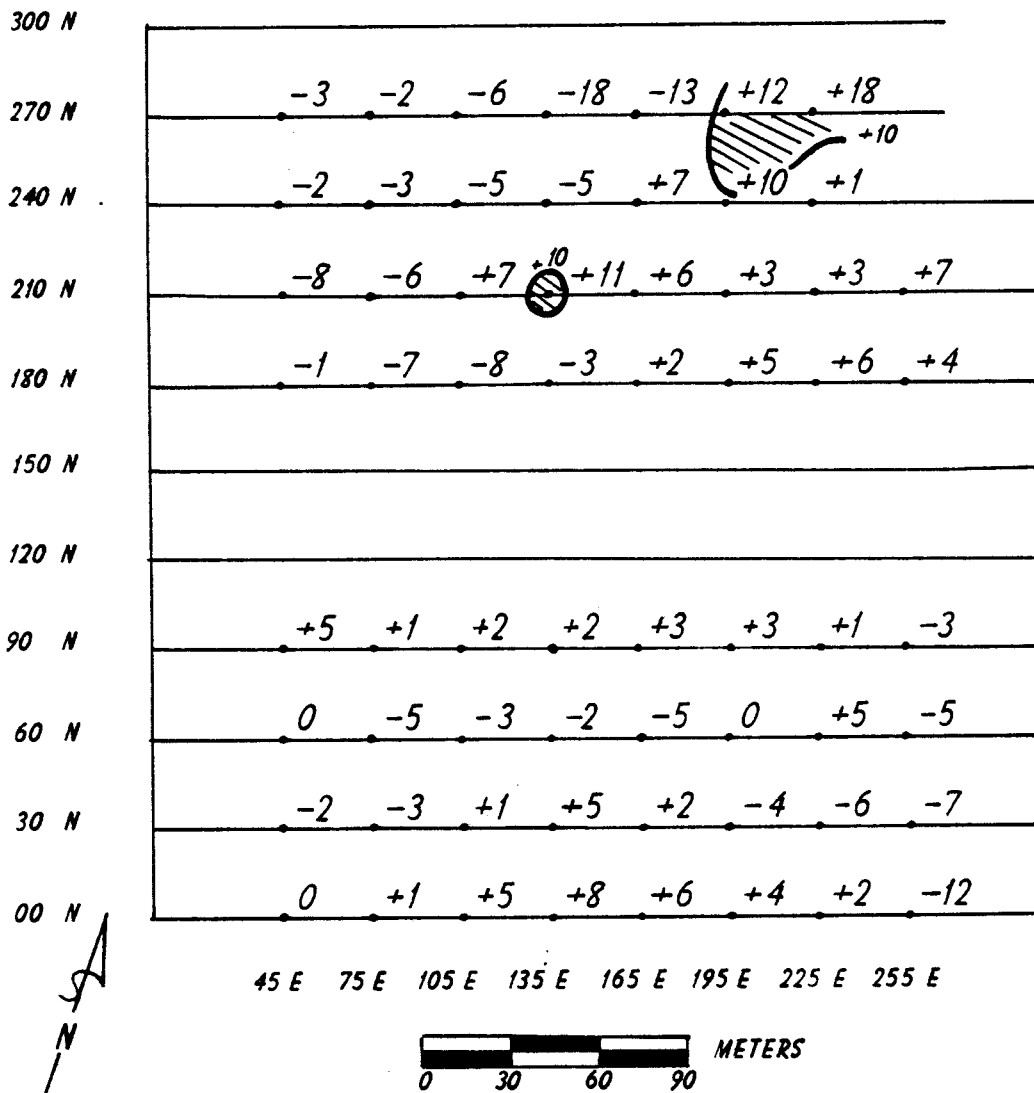 300 N
270 N -3 -2 -6 -18 -13 +12 +18
+10
240 N -2 -3 -5 -5 +7 +10 +1
+10
210 N -8 -6 +7 +11 +6 +3 +3 +7
180 N -1 -7 -8 -3 +2 +5 +6 +4
150 N
120 N
90 N +5 +1 +2 +2 +3 +3 +1 -3
60 N 0 -5 -3 -2 -5 0 +5 -5
30 N -2 -3 +1 +5 +2 -4 -6 -7
00 N 0 +1 +5 +8 +6 +4 +2 -12
45 E 75 E 105 E 135 E 165 E 195 E 225 E 255 E
N
METERS
0 30 60 90